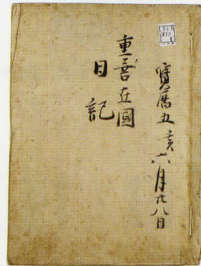 寶暦五亥六月廿八日
重喜在國
日記